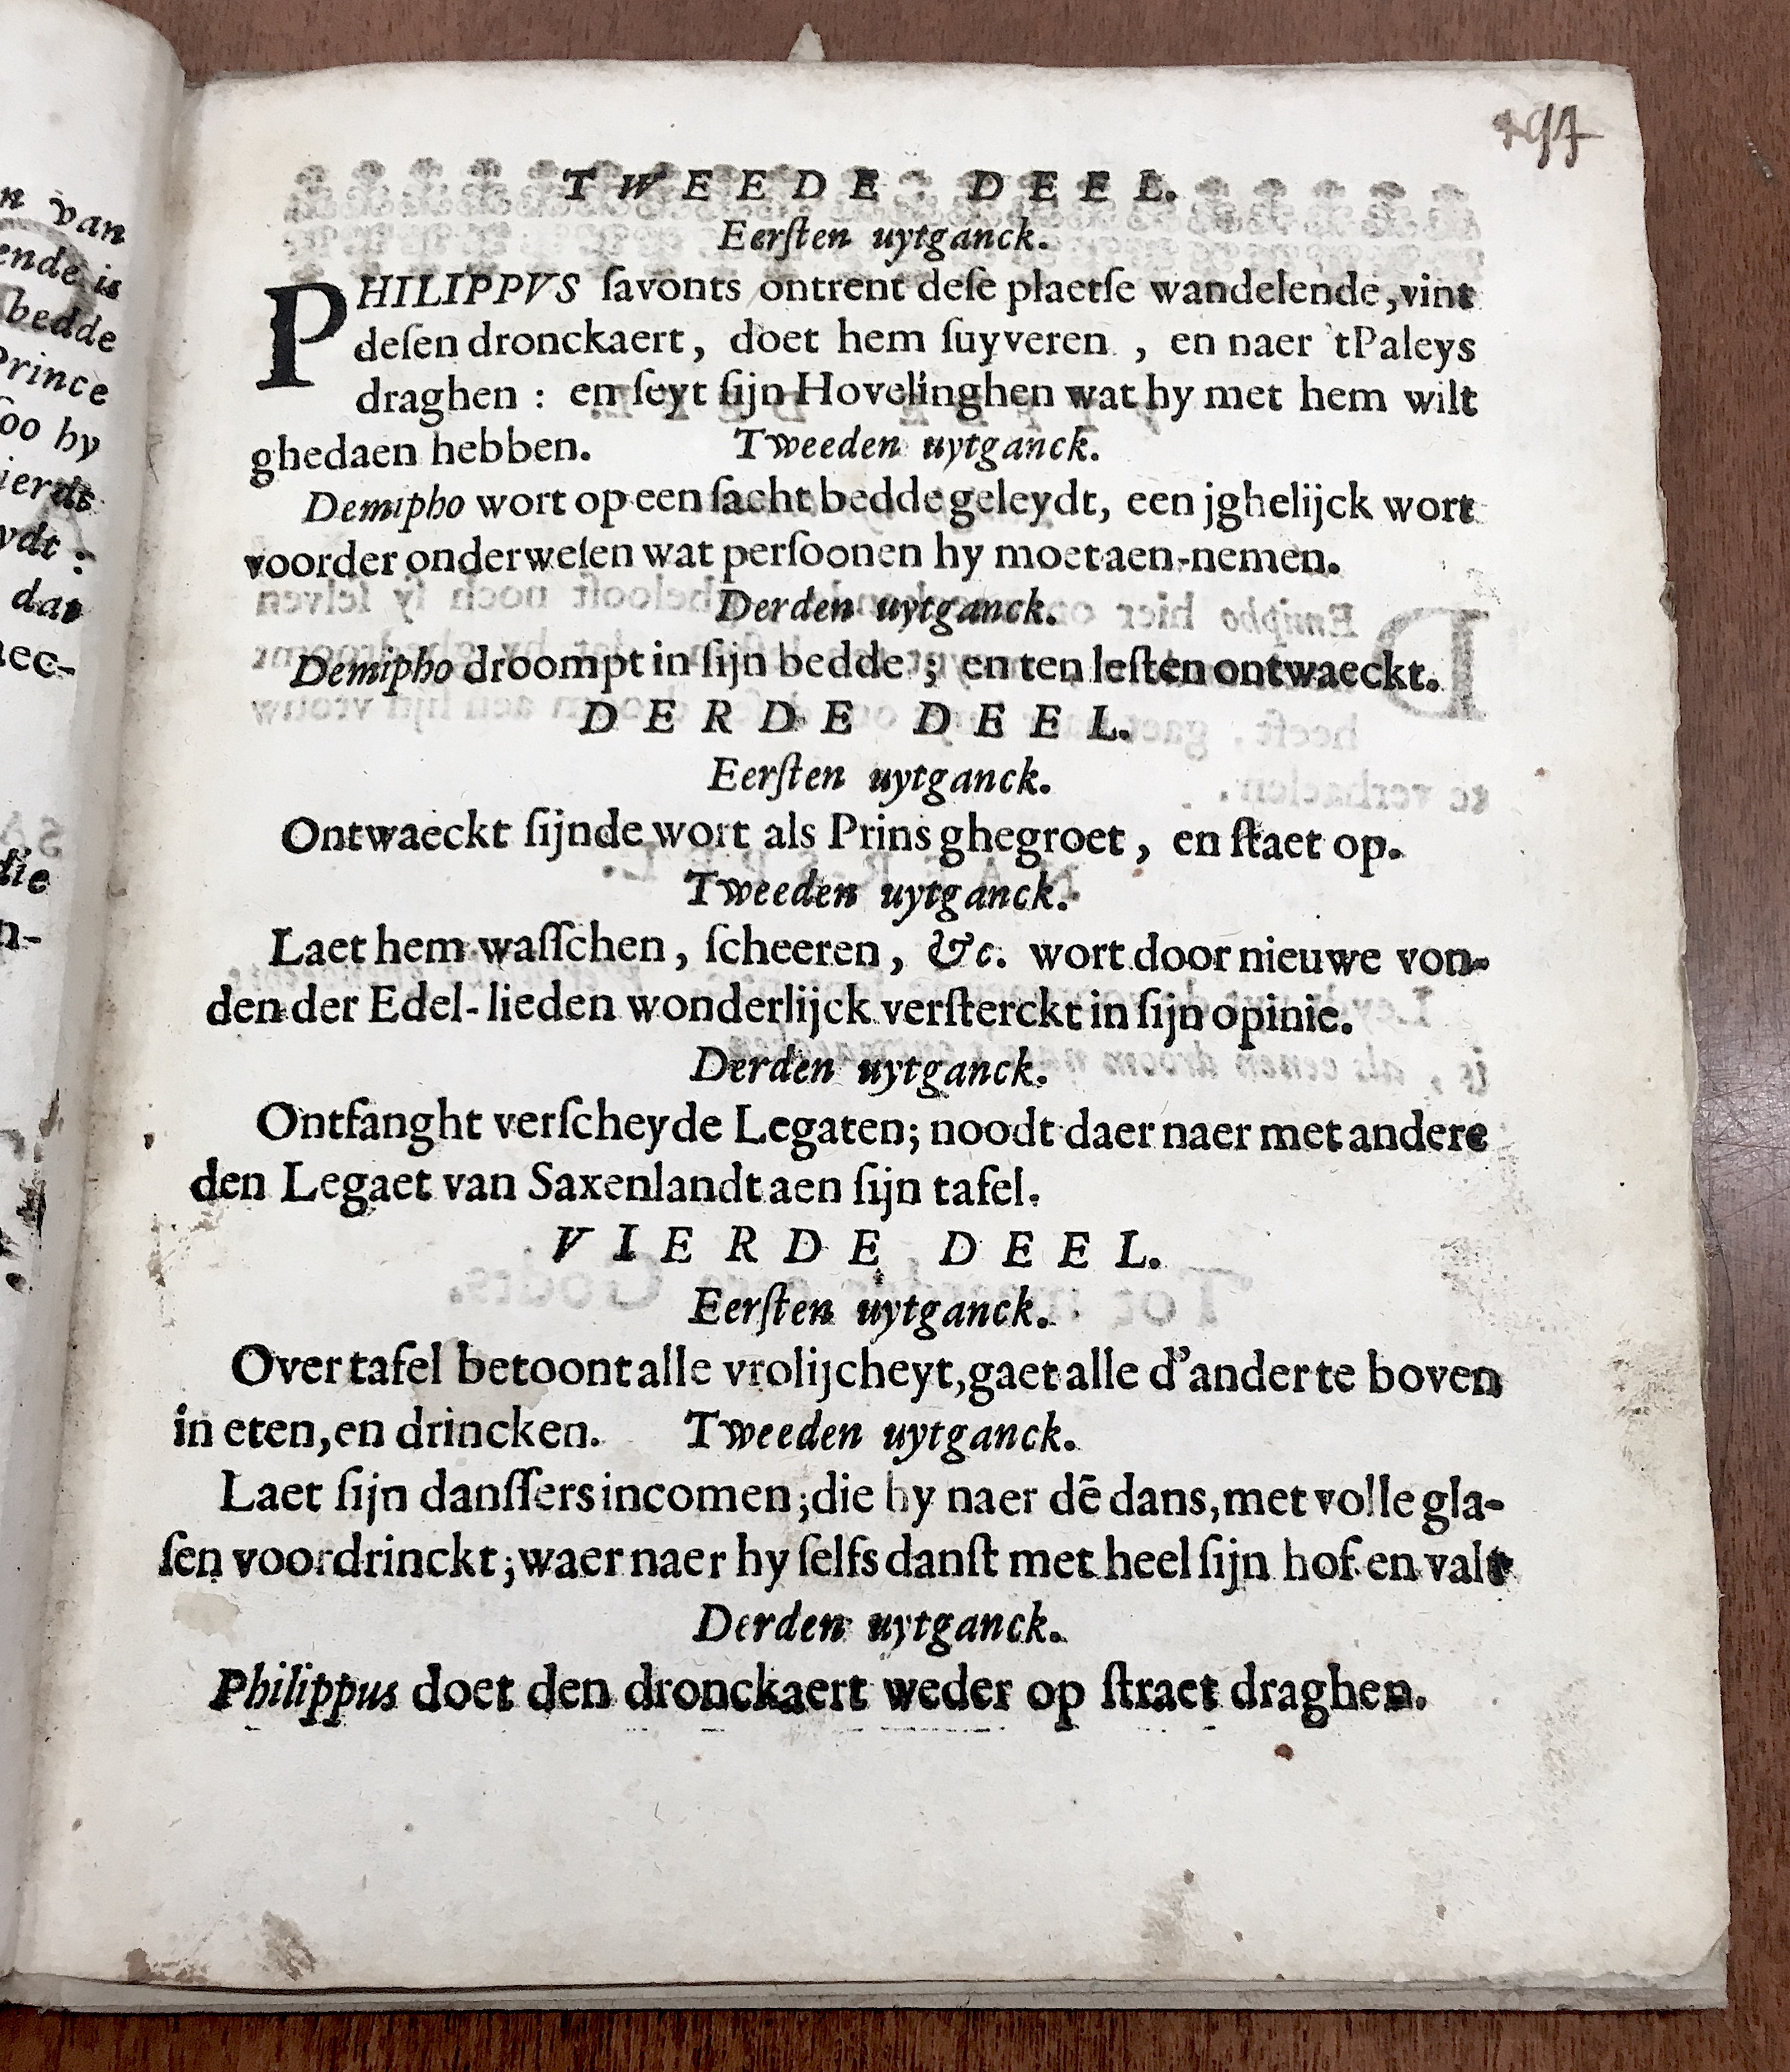 197
TWEEDE DEEL.
Eerſten uytganck.
PHILIPPVS ſavonts ontrent deſe plaetſe wandelende, vint
deſen dronckaert, doet hem ſuyveren, en naer 'tPaleys
draghen : en ſeyt ſijn Hovelinghen wat hy met hem wilt
ghedaen hebben. Tweeden uytganck.
Demipho wort op een ſacht bedde geleydt, een jghelijck wort
voorder onderweſen wat perſoonen hy moet aen-nemen.
Derden uytganck.
Demipho droompt in ſijn bedde ; en ten leſten ontwaeckt.
DERDE DEEL.
Eerſten uytganck.
Ontwaeckt ſijnde wort als Prins ghegroet, en ſtaet op.
Tweeden uytganck.
Laet hem waſſchen, ſcheeren, &c. wort door nieuwe von-
den der Edel-lieden wonderlijck verſterckt in ſijn opinie.
Derden uytganck.
Ontfanght verſcheyde Legaten; noodt daer naer met andere
den Legaet van Saxenlandt aen ſijn tafel.
VIERDE DEEL.
Eerſten uytganck.
Over tafel betoont alle vrolijcheyt, gaet alle d'ander te boven
in eten, en drincken. Tweeden uytganck.
Laet ſijn danſſers incomen; die hy naer dē dans, met volle gla-
ſen voordrinckt; waer naer hy ſelfs danſt met heel ſijn hof en valt
Derden uytganck.
Philippus doet den dronckaert weder op ſtraet draghen.
n van
ende is
bedde
Prince
ſoo hy
ierdt
ydt :
dat
aec-
die
n-